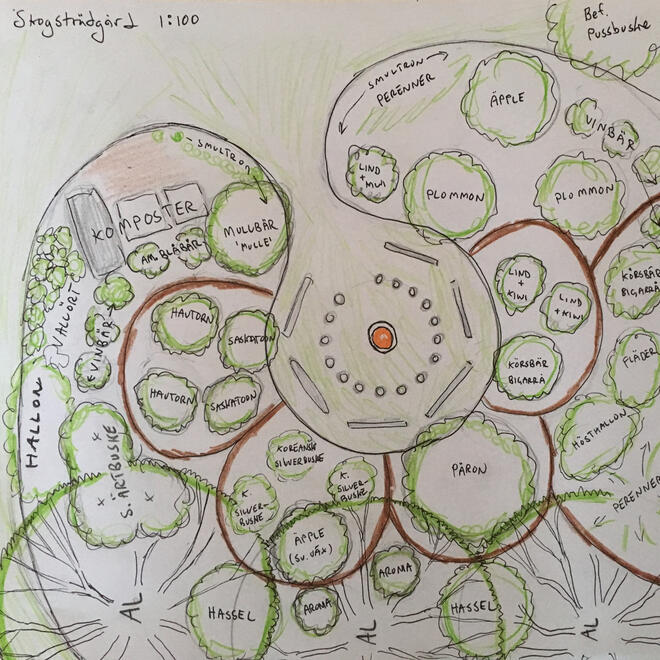 Skogsträdgård 1:100
Bef.
Pussbuske
SMULTRON
PERENNER
ÄPPLE
VINBÄR
LIND
+ KIWI
PLOMMON
PLOMMON
SMULTRON
KOMPOSTER
MULLBÄR
'MULLE'
AM. BLÅBÄR
VALLÖRT
VINBÄR
HAUTORN
SASKATOON
HAUTORN
SASKATOON
LIND
+
KIWI
LIND
+ KIWI
KÖRSBÄR
BIGARRÅ
KÖRSBÄR
BIGARRÅ
FLÄDER
HALLON
S. ÄRTBUSKE
KOREANSK
SILVERBUSKE
K.
SILVER-
BUSKE
K.
SILVER-
BUSKE
PÄRON
HÖSTHALLON
PERENNER
ÄPPLE
(SV. VÄX)
AROMA
AROMA
HASSEL
HASSEL
AL
AL
AL